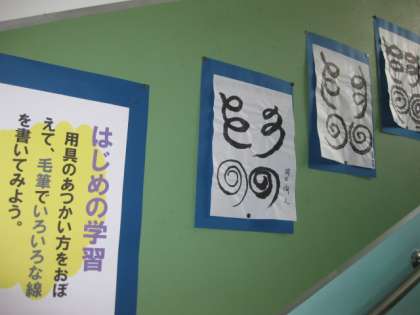 はじめの学習
用具のあつかい方をおぼ
えて、毛筆でいろいろな線
を書いてみよう。